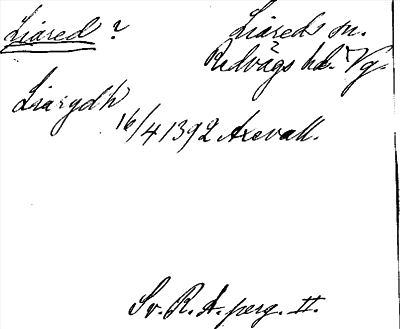 Liared ? Liareds sn.
Redvägs hd. Vg.
Liarydh
16/4 1392 Axevall.
Sv. R. A. perg. II.